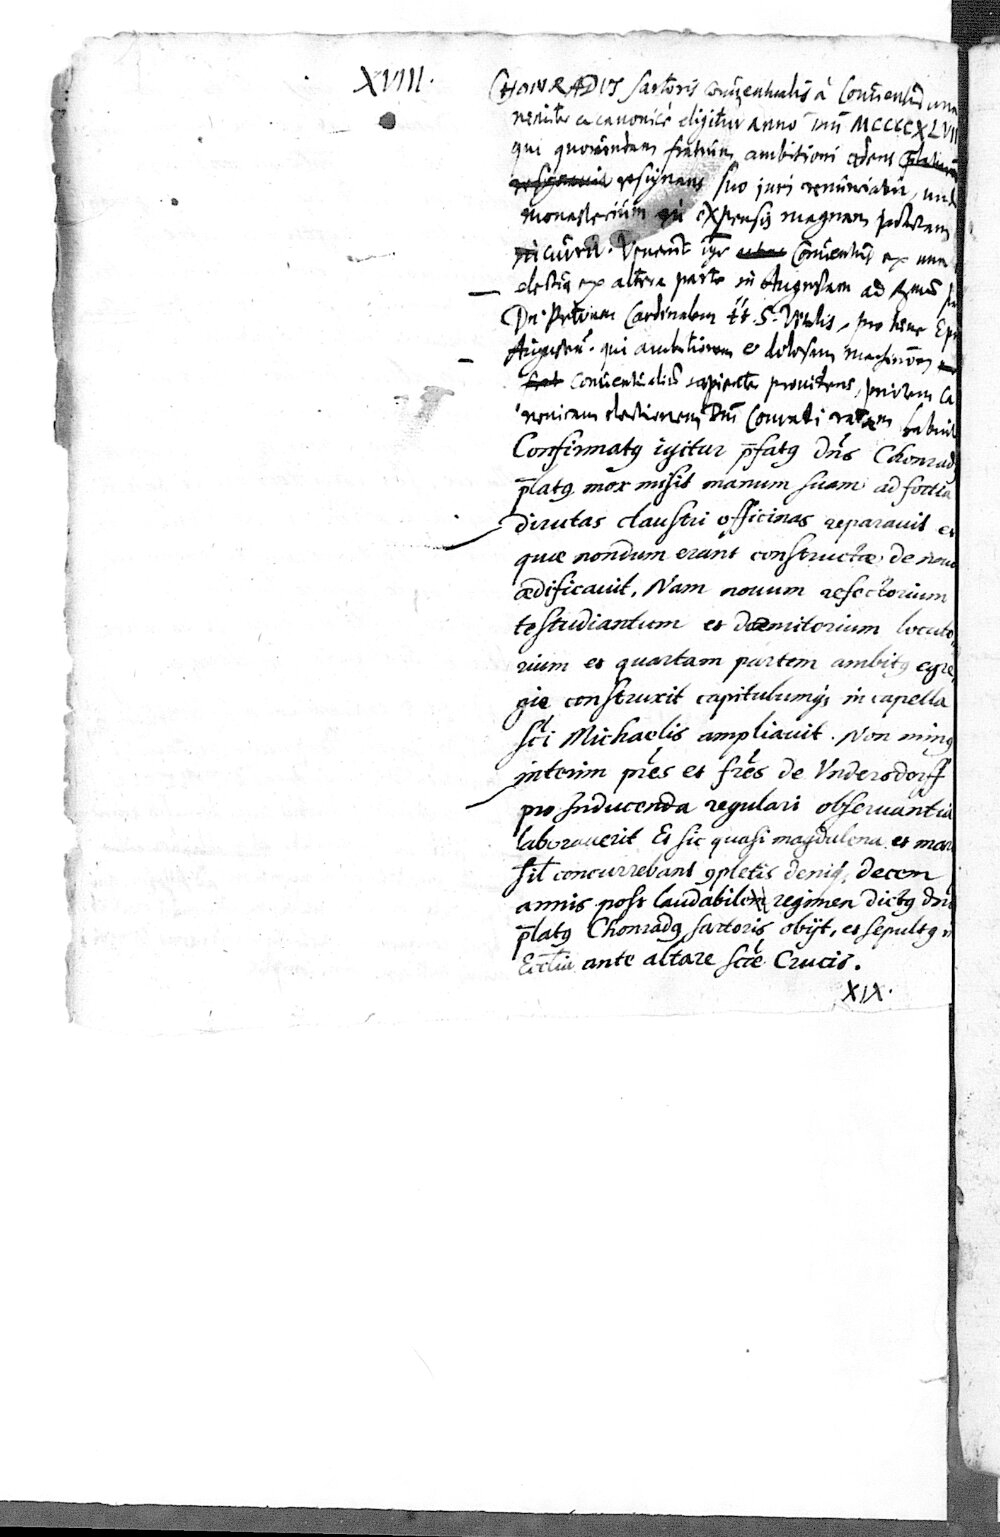 XVIII.
CHONRADVS Sartoris conventualis à Conventu una
nimiter ac canonicè eligitur anno Dni MCCCCXLVII
qui quorundam fratrum ambitioni cedens
resignans suo juri renunciavit, und
monasterium in expensis magnam jacturam
incurrit. Venerunt igr Conventus ex una
electus ex altera parte in Augustam ad Rmu
Dn. Petrum Cardinalem tt. S. Vitalis, pro tunc Ep
August. qui ambitiosam et dolosam machinaõem
conventualiũ sapienter providens, priorem ca
nonicam electionem Dni Conradi ratam habuit
Confirmatꝯ igitur p̄fatꝯ dn̄s Chonradꝯ
p̄latꝯ mox misit manum suam ad fortia
dirutas claustri officinas reparavit et
quæ nondum erant constructæ, de novo
ædificavit, Nam novum refectorium
testudiantum et dormitorium locuto,
rium et quartam partem ambitꝯ egre,
gie construxit capitulumq; in capella
sc̄i Michaelis ampliavit. Non minꝯ
interim pr̄es et fr̄es de Vndersdorff
pro inducenda regulari observantia
laboraverit Et sic quasi magdalena et mar
simt concurrebant ꝯpletis deniq; decem
annis post laudabile regimen dictꝯ dn̄s
p̄latꝯ Chonradꝯ sartoris obijt, et sepultꝯ in
Eccl̄ia ante altare sc̄e Crucis.
XIX.